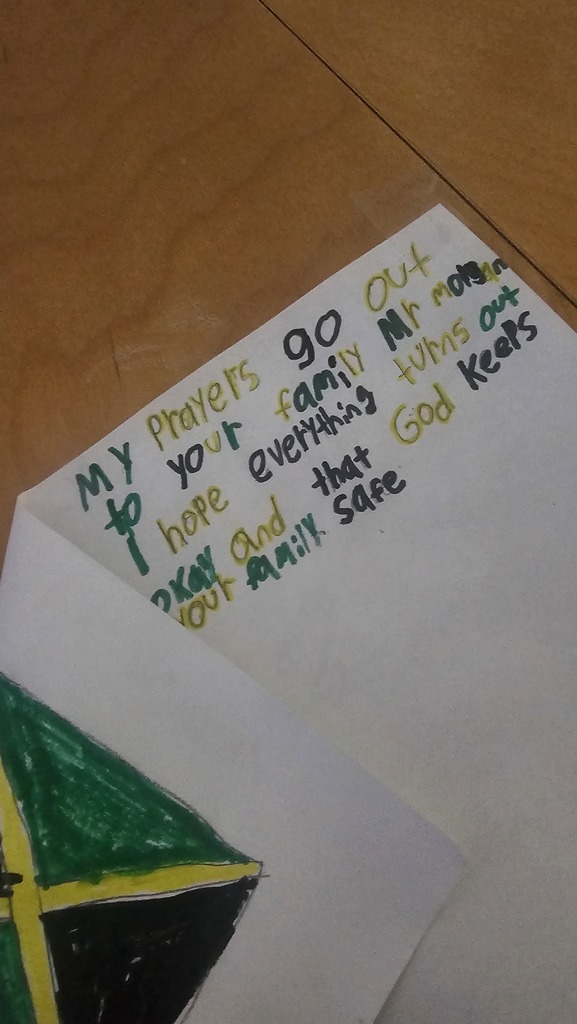 My Prayers go out
to your family Mr morgan
I hope everything turns out
okay and that God keeps
your family safe